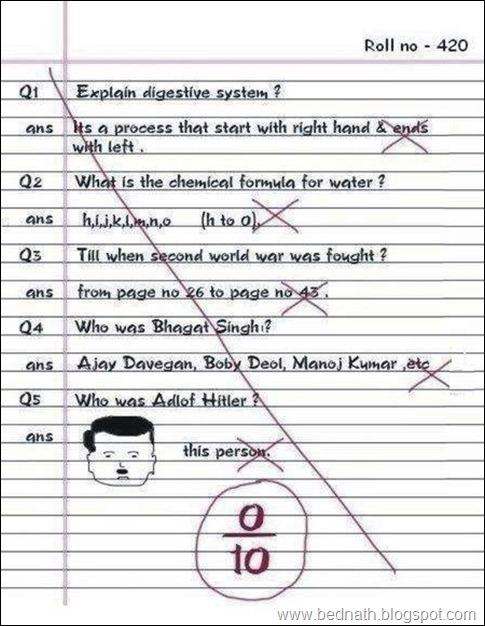 Roll no - 420
Q1 Explain digestive system ?
ans Its a process that start with right hand & ends
with left .
Q2 What is the chemical formula for water ?
ans h,i,j,k,l,m,n,o (h to o).
Q3 Till when second world war was fought ?
ans from page no 26 to page no 43 .
Q4 Who was Bhagat Singh?
ans Ajay Davegan, Boby Deol, Manoj Kumar ,etc
Q5 Who was Adlof Hitler ?
ans this person.
0
10
www.bednath.blogspot.com